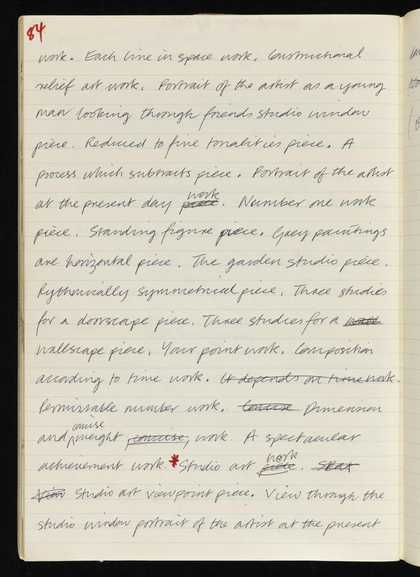 84
work. Each line in space work. Constructional
relief art work. Portrait of the artist as a young
man looking through friends studio window
piece. Reduced to fine tonalities piece. A
process which subtracts piece. Portrait of the artist
work
at the present day piece. Number one work
piece. Standing figure piece. Grey paintings
are horizontal piece. The garden studio piece.
Rythmically symmetrical piece. Three studies
for a doorscape piece. Three studies for a
wallscape piece. Your point work. Composition
according to time work. It depends on time work.
Permissable number work. Dimension
and weight concise, work A spectacular
work
achievement work. * Studio art piece.
Studio art viewpoint piece. View through the
studio window portrait of the artist at the present